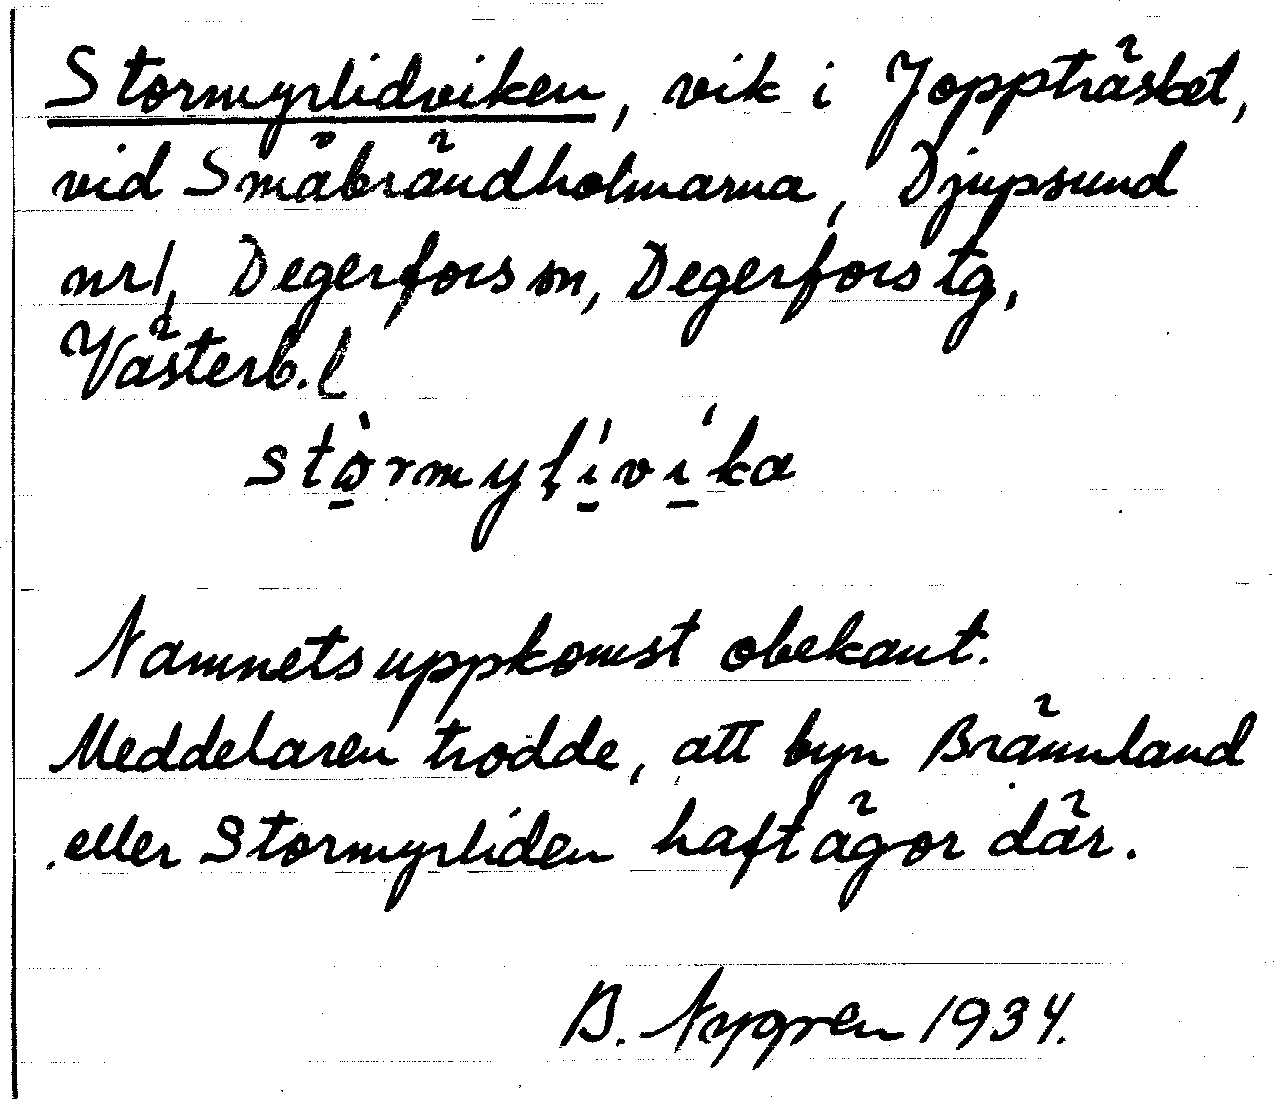 Stormyrlidviken, vik i Joppträsket,
vid Småbrändholmarna, Djupsund
nr 1, Degerfors sn, Degerfors tg,
Västerb. l
stòrmyļi´vi´ka
Namnets uppkomst obekant.
Meddelaren trodde, att byn Brännland
eller Stormyrliden haft ägor där.
B. Nygren 1934.